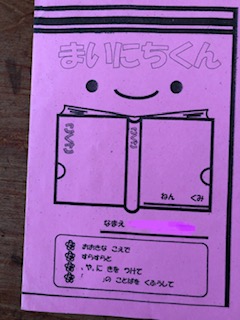 まいにちくん
ねん くみ
なまえ
おおきな こえで
すらすらと
、や。に きを つけて
「 」の ことばを くふうして